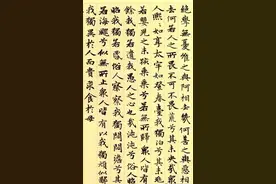 絕學無憂唯之與阿相去幾何善之與惡相
去何若人之所畏不可不畏荒兮其未央哉眾
人熙〻如享太牢如登春臺我獨泊兮其未兆
若嬰兒之未孩乘乘兮若無所歸眾人皆有
餘我獨若遺我愚人之心也哉沌沌兮俗人昭
昭我獨若昏俗人察察我獨悶悶澹兮其
若海飂兮似無止眾人皆有以我獨頑似鄙
我獨異於人而貴求食於母